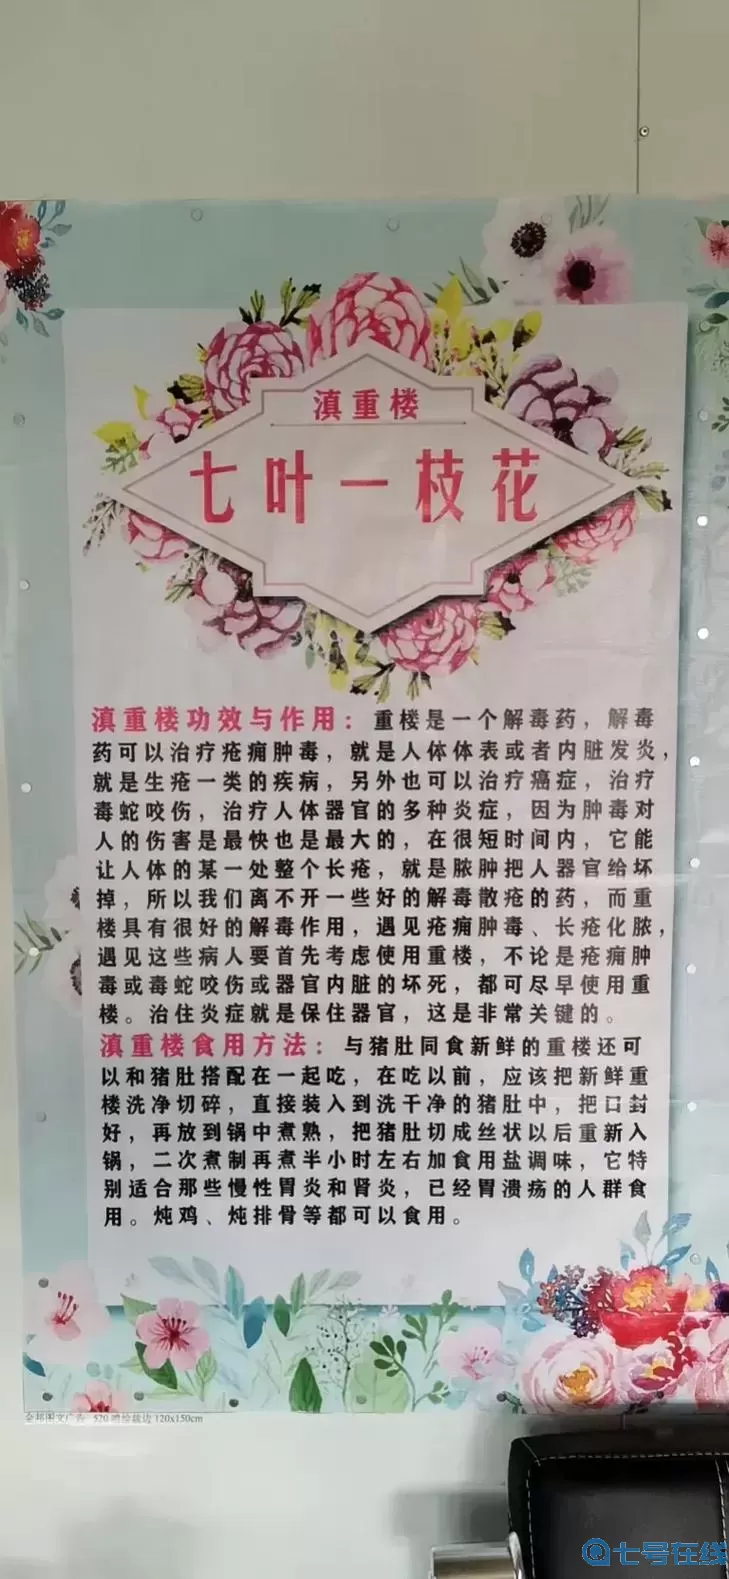 滇重楼
七叶一枝花
滇重楼功效与作用：重楼是一个解毒药，解毒
药可以治疗疮痈肿毒，就是人体体表或者内脏发炎，
就是生疮一类的疾病，另外也可以治疗癌症，治疗
毒蛇咬伤，治疗人体器官的多种炎症，因为肿毒对
人的伤害是最快也是最大的，在很短时间内，它能
让人体的某一处整个长疮，就是脓肿把人器官给坏
掉，所以我们离不开一些好的解毒散疮的药，而重
楼具有很好的解毒作用，遇见疮痈肿毒、长疮化脓，
遇见这些病人要首先考虑使用重楼，不论是疮痈肿
毒或毒蛇咬伤或器官内脏的坏死，都可尽早使用重
楼。治住炎症就是保住器官，这是非常关键的。
滇重楼食用方法：与猪肚同食新鲜的重楼还可
以和猪肚搭配在一起吃，在吃以前，应该把新鲜重
楼洗净切碎，直接装入到洗干净的猪肚中，把口封
好，再放到锅中煮熟，把猪肚切成丝状以后重新入
锅，二次煮制再煮半小时左右加食用盐调味，它特
别适合那些慢性胃炎和肾炎，已经胃溃疡的人群食
用。炖鸡、炖排骨等都可以食用。
图文广告 520 喷绘裁边 120x150cm
七号在线